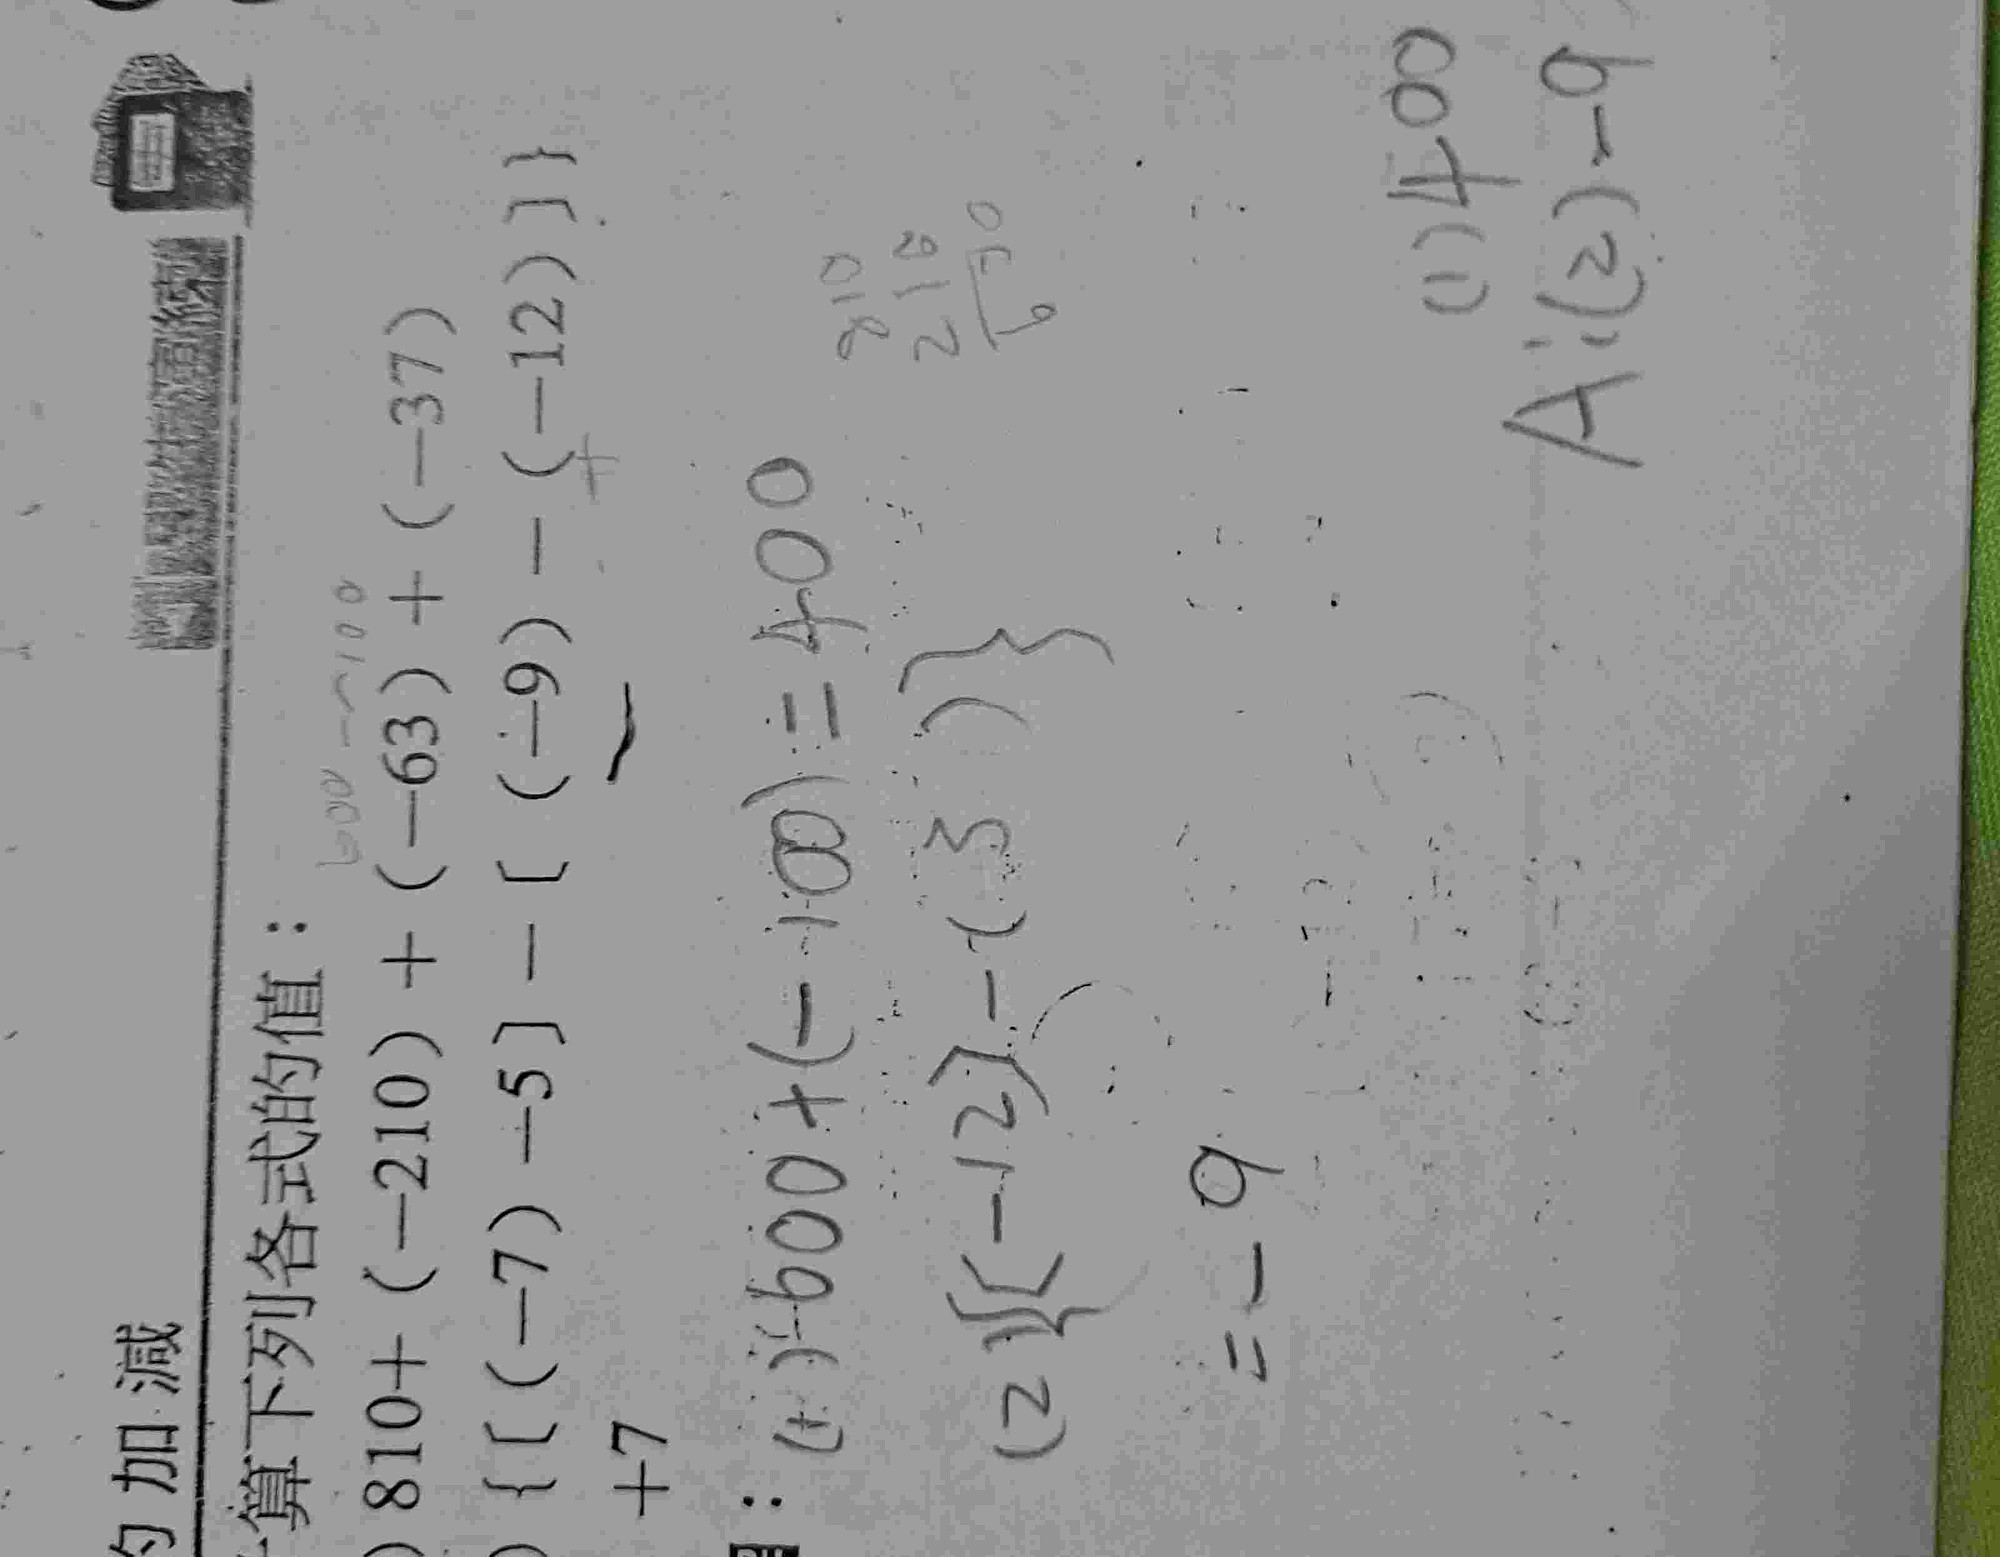 的加減
算下列各式的值：
600-100
)810+(-210)+(-63)+(-37)
){[(-7)-5]-[(-9)-(-12)]}
+
+7
：(1)600+(-100)=400
810
210
600
(2){[-12]-(3)}
=-9
(1)400
A:(2)-9